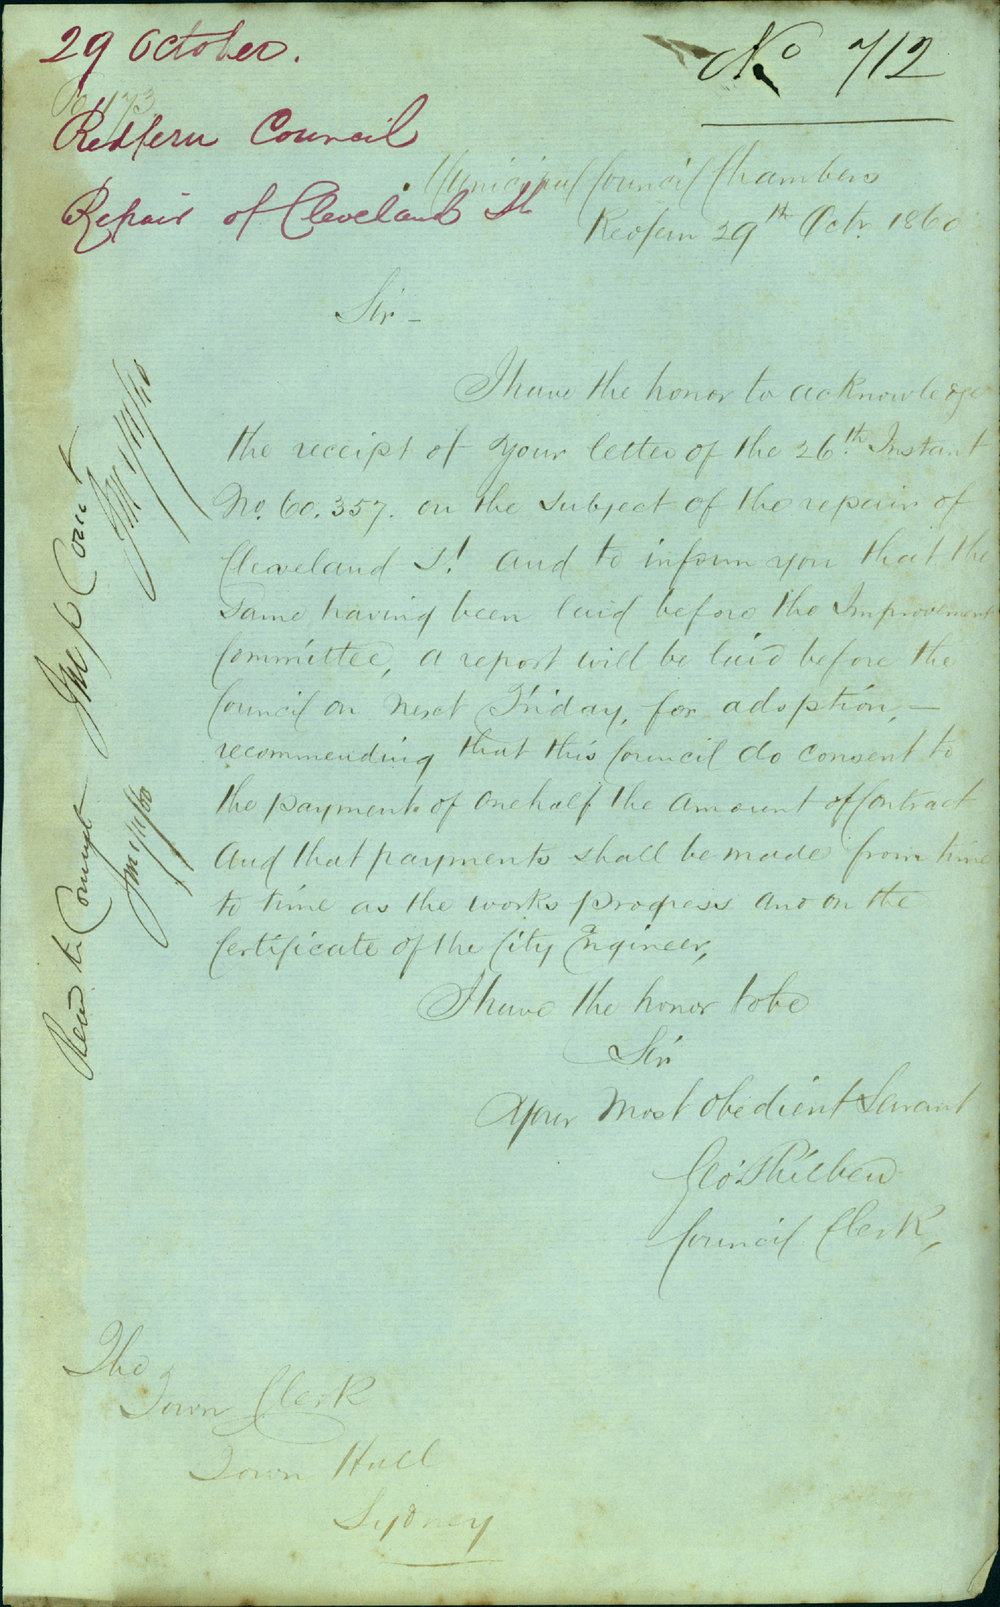 29 October.
No 712
Redfern Council
Repair of Cleveland St
Municipal Council Chambers
Redfern 29th Octr. 1860
Sir -
I have the honor to acknowledge
the receipt of your letter of the 26th. Instant
No. 60.357. on the subject of the repair of
Cleveland St. and to inform you that the
same having been laid before the Improvement
Committee, a report will be laid before the
Council on next Friday, for adoption, -
recommending that this Council do consent to
the payment of one half the amount of Contract
and that payments shall be made from time
to time as the works progress and on the
Certificate of the City Engineer,
I have the honor to be
Sir
Your Most obedient Servant
Geo.
Council Clerk,
The
Town Clerk
Town Hall
Sydney